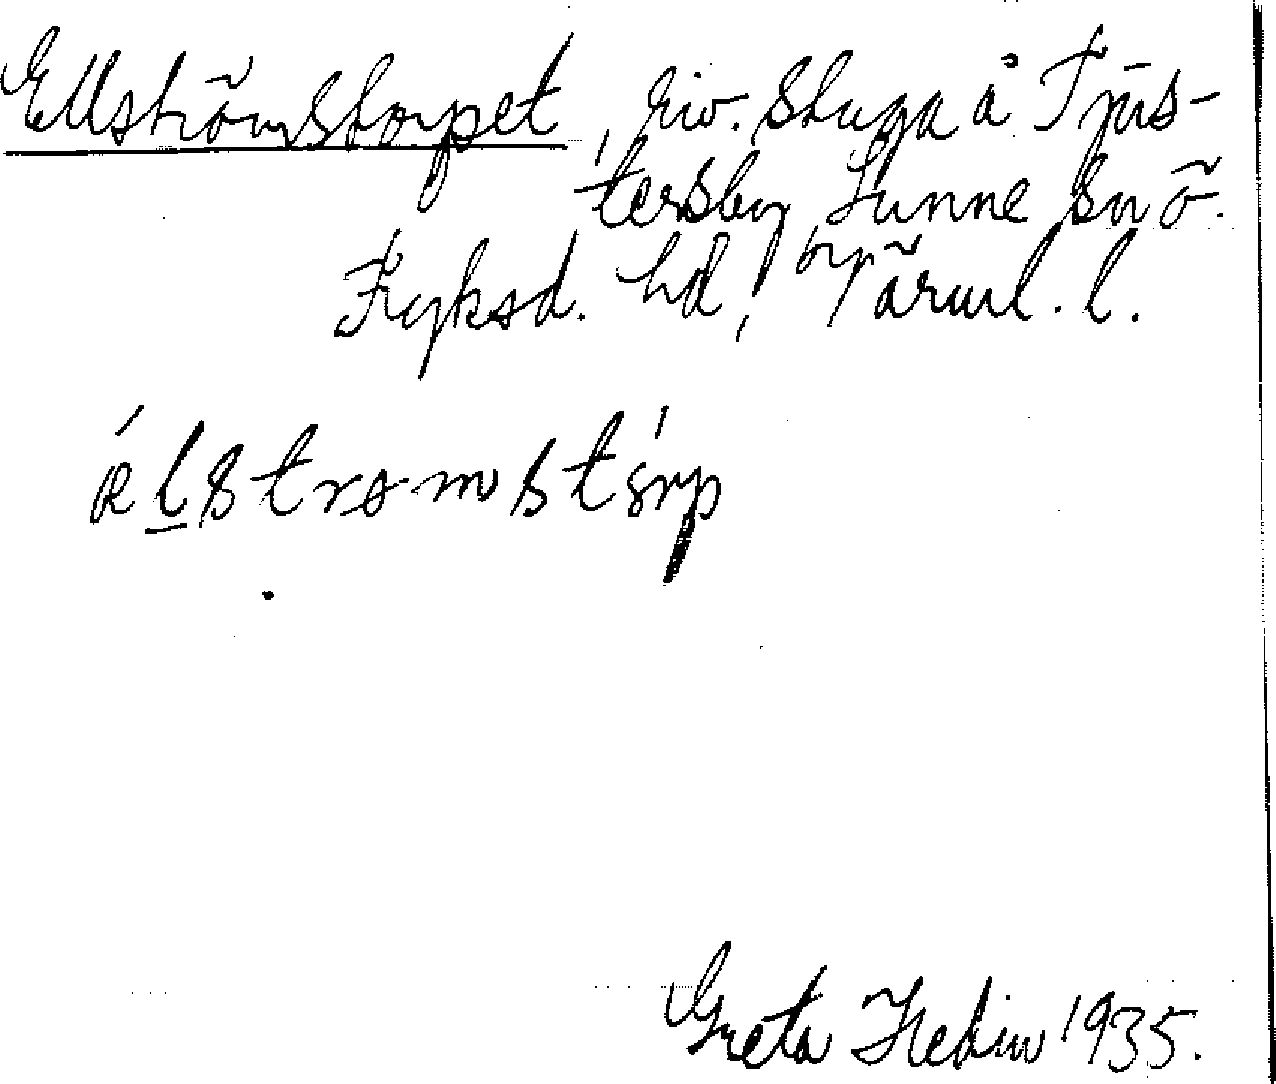 Ellströmstorpet, riv. stuga å Tjus-
tersby, Sunne sn ö.
Fryksd. hd, Värml. l.
Greta Hedin 1935.